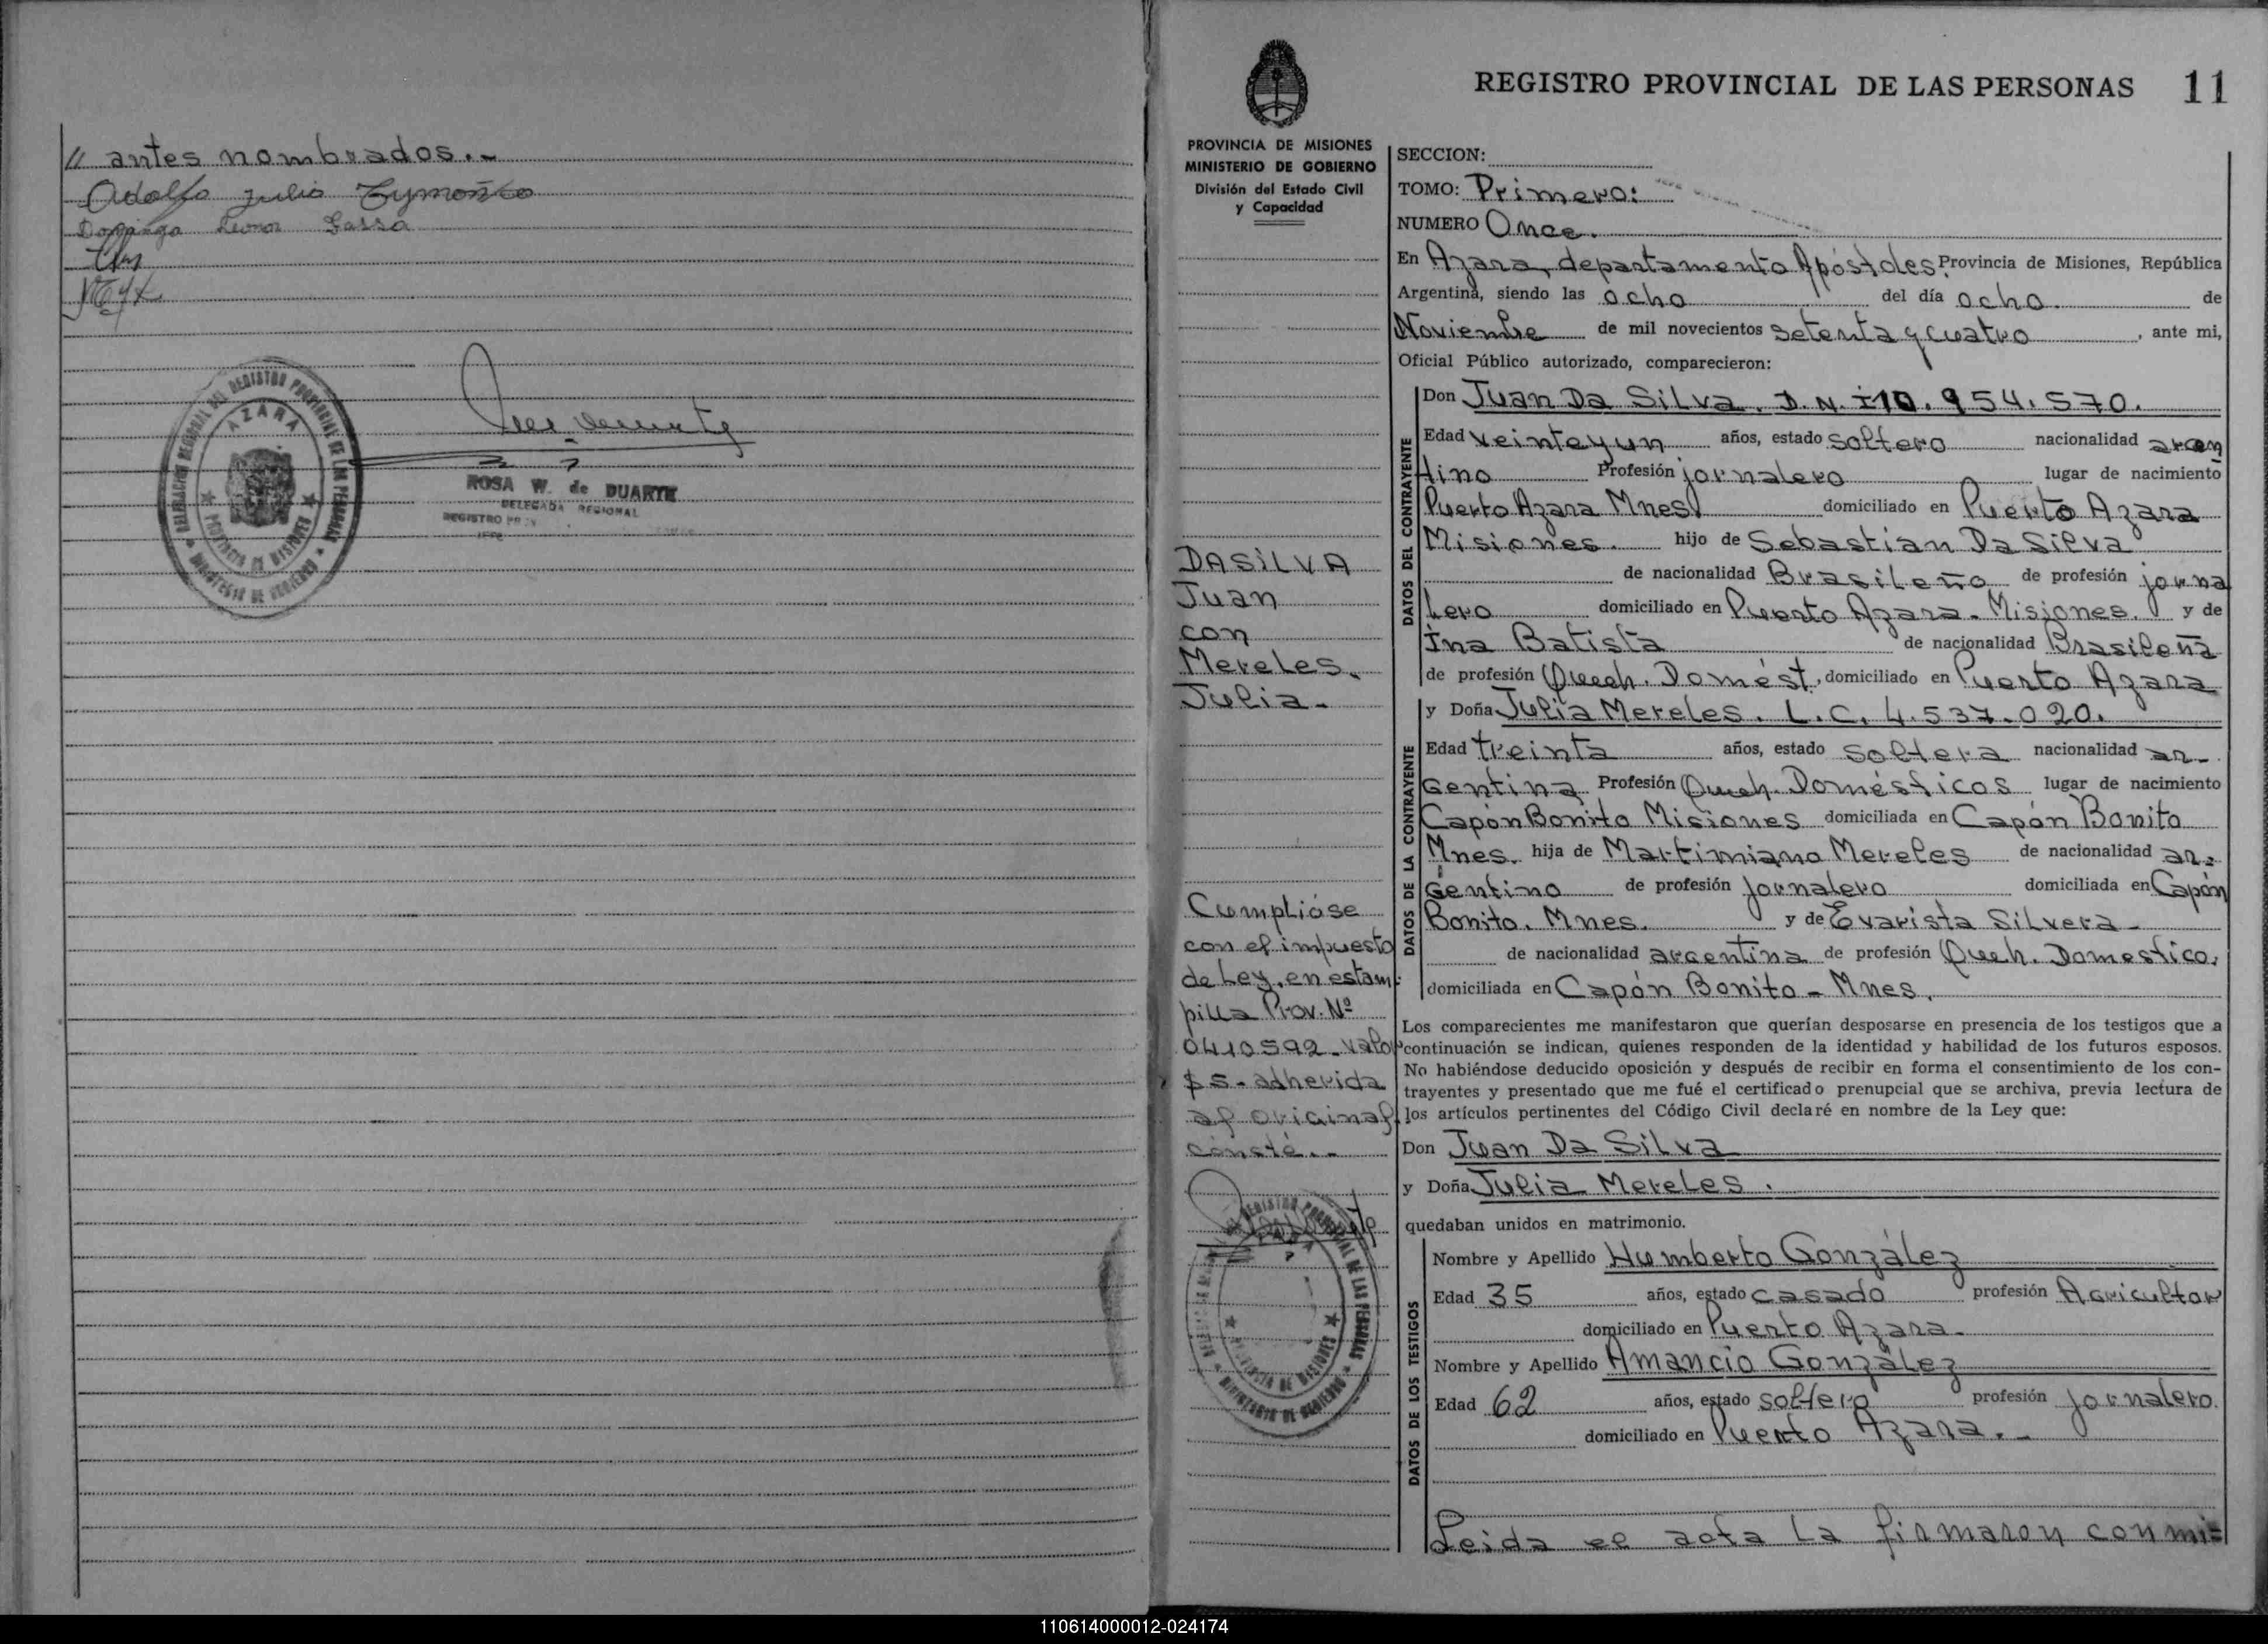 // antes nombrados.-
Adolfo Julio Zymoñko
Dominga Leonor Sassa
AZARA
PROVINCIA DE MISIONES
ROSA W. de DUARTE
DELEGADA REGIONAL
REGISTRO
REGISTRO PROVINCIAL DE LAS PERSONAS 11
PROVINCIA DE MISIONES
MINISTERIO DE GOBIERNO
División del Estado Civil
y Capacidad
DASILVA
Juan
con
Mereles.
Julia.-
Cumplióse
con el impuesto
de Ley, en estam-
pilla Prov. Nº
0410592_valor
$ 5.- adherida
al original
conste.-
SECCION:
TOMO: Primero:
NUMERO Once.
En Azara, departamento Apóstoles, Provincia de Misiones, República
Argentina, siendo las ocho del día ocho. de
Noviembre de mil novecientos setenta y cuatro, ante mi,
Oficial Público autorizado, comparecieron:
DATOS DEL CONTRAYENTE
Don Juan Da Silva. D.N.I 10.954.570.
Edad veinteyun años, estado soltero nacionalidad argen
tino Profesión jornalero lugar de nacimiento
Puerto Azara Mnes. domiciliado en Puerto Azara
Misiones. hijo de Sebastian Da Silva
de nacionalidad Brasileño de profesión jorna
lero domiciliado en Puerto Azara-Misiones. y de
Ina Batista de nacionalidad Brasileña
de profesión Queh. Domést. domiciliado en Puerto Azara
DATOS DE LA CONTRAYENTE
y Doña Julia Mereles. L.C. 4.537.020.
Edad treinta años, estado soltera nacionalidad ar-
gentina Profesión Queh. Domésticos lugar de nacimiento
Capón Bonito Misiones domiciliada en Capón Bonito
Mnes. hija de Martimiano Mereles de nacionalidad ar-
gentino de profesión Jornalero domiciliada en Capón
Bonito. Mnes. y de Evarista Silvera-
de nacionalidad argentina de profesión Queh. Domestico.
domiciliada en Capón Bonito - Mnes.
Los comparecientes me manifestaron que querían desposarse en presencia de los testigos que a
continuación se indican, quienes responden de la identidad y habilidad de los futuros esposos.
No habiéndose deducido oposición y después de recibir en forma el consentimiento de los con-
trayentes y presentado que me fué el certificado prenupcial que se archiva, previa lectura de
los artículos pertinentes del Código Civil declaré en nombre de la Ley que:
Don Juan Da Silva
y Doña Julia Mereles.
quedaban unidos en matrimonio.
DATOS DE LOS TESTIGOS
Nombre y Apellido Humberto González
Edad 35 años, estado casado profesión Agricultor
domiciliado en Puerto Azara-
Nombre y Apellido Amancio González
Edad 62 años, estado soltero profesión jornalero.
domiciliado en Puerto Azara.-
Leida el acta la firmaron con mi=
110614000012-024174